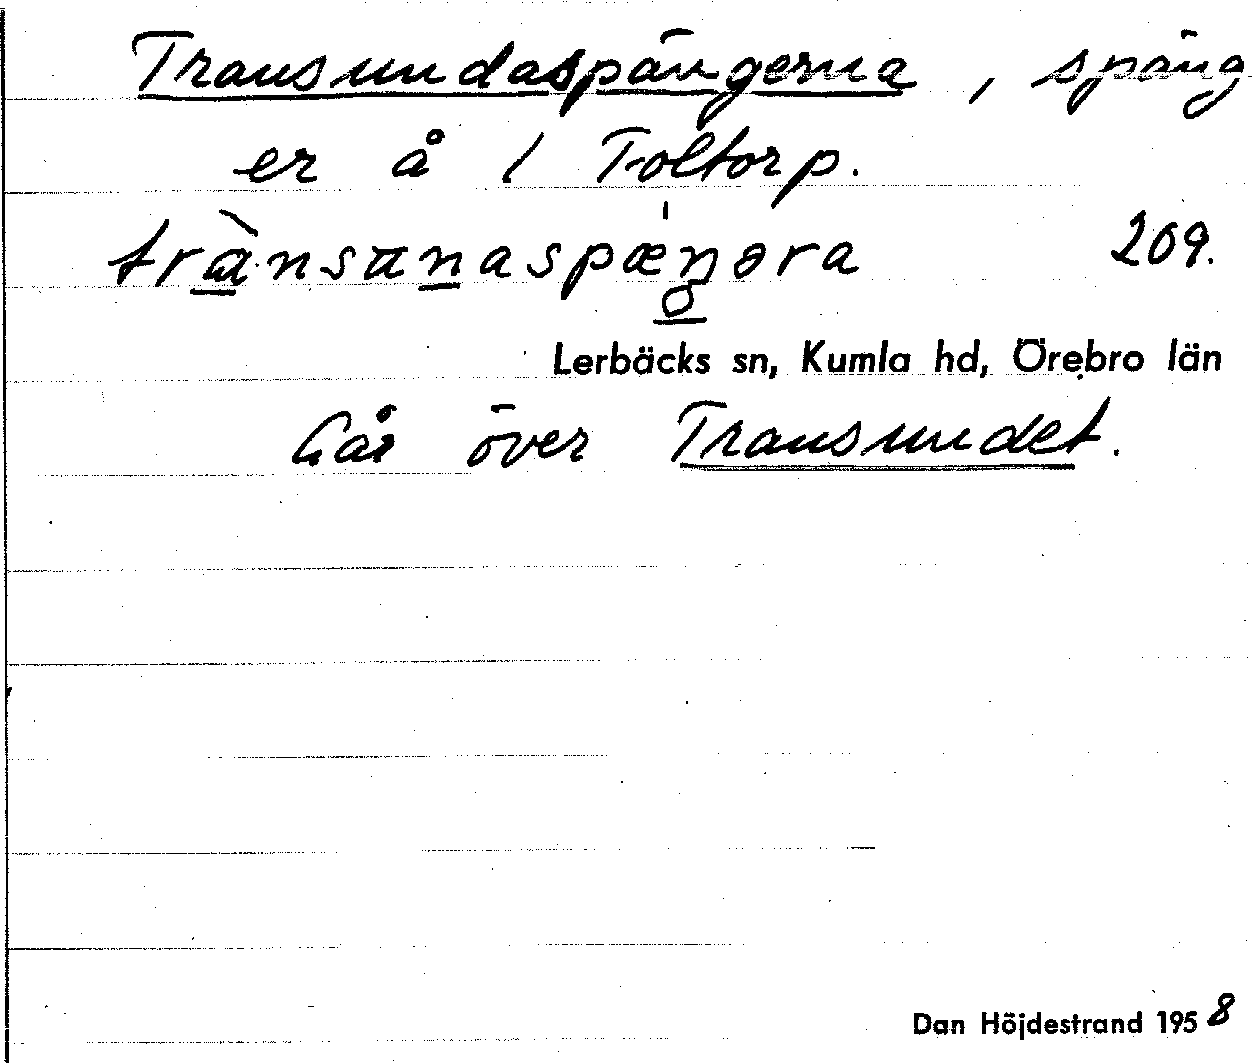 Transundaspängerna, späng
er å 1 Toltorp.
trànsunaspæŋəra 209.
Lerbäcks sn, Kumla hd, Örebro län
Går över Transundet.
Dan Höjdestrand 1958